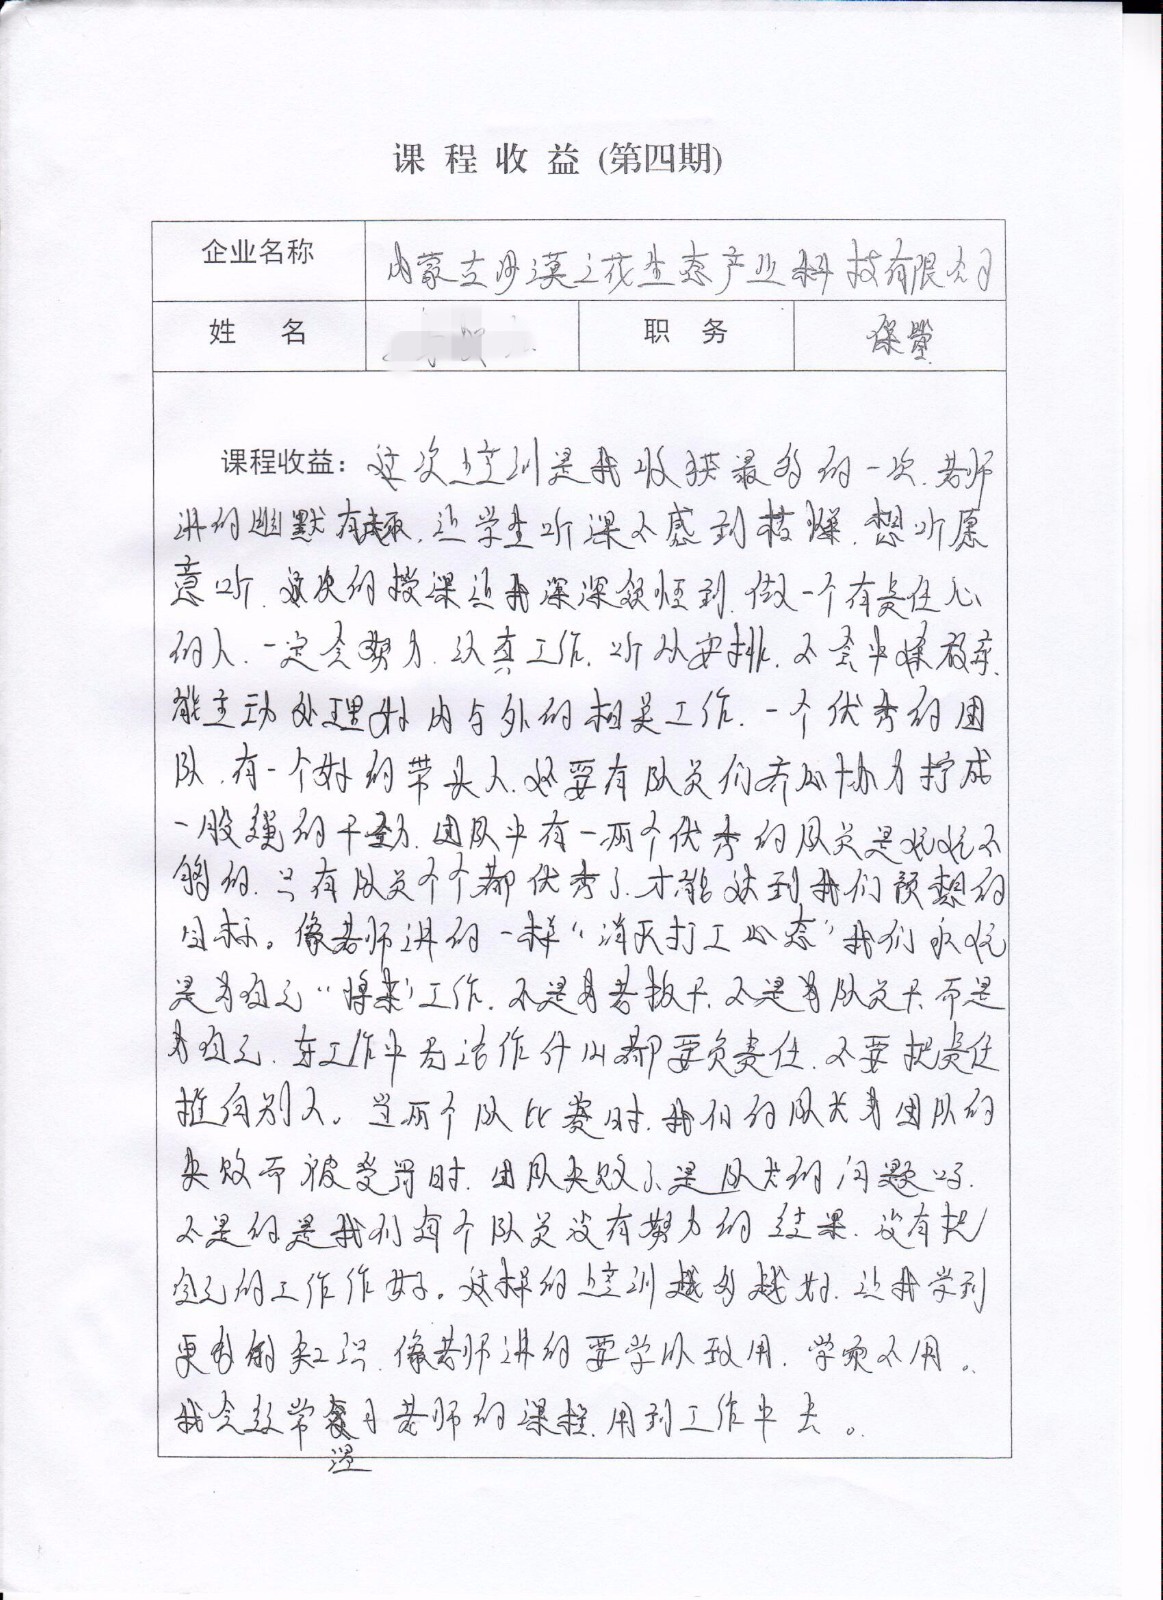 课程收益(第四期)
企业名称 内蒙古沙漠之花生态产业科技有限公司
姓 名 职 务 保管
课程收益：这次培训是我收获最多的一次.老师
讲的幽默有趣.让学生听课不感到枯燥.想听愿
意听.这次的授课让我深深领悟到.做一个有责任心
的人.一定会努力.认真工作.听从安排.不会半途放弃.
能主动处理好内与外的相关工作.一个优秀的团
队.有一个好的带头人.还要有队员们齐心协力拧成
一股绳的干劲.团队中有一两个优秀的队员是远远不
够的.只有队员个个都优秀了.才能达到我们预想的
目标。像老师讲的一样"消灭打工心态"我们永远
是为自己"将来"工作.不是为老板干.不是为队员干.而是
为自己.在工作中无论作什么都要负责任.不要把责任
推向别人。当两个队比赛时.我们的队长为团队的
失败而被受罚时.团队失败了是队长的问题吗.
不是的是我们每个队员没有努力的结果.没有把
自己的工作作好。这样的培训越多越好.让我学到
更多的知识.像老师讲的要学以致用.学而不用。
我会经常温习老师的课程.用到工作中去。